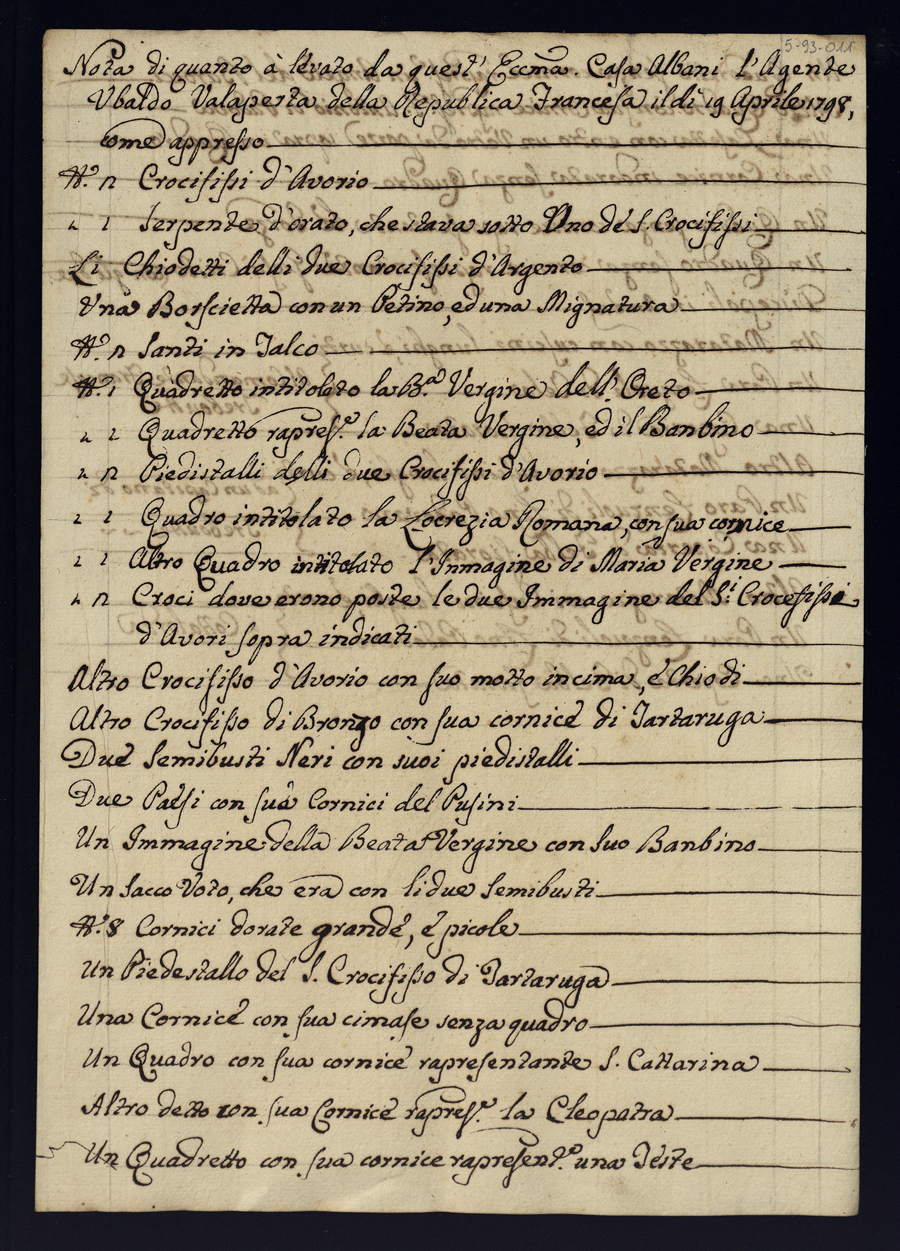 5-93-011
Nota di quanto à levato da quest' Eccma. Casa Albani l'Agente
Ubaldo Valaperta della Republica Francesa il di 19 Aprile 1798,
come appresso
N.º 2 Crocifissi d'Avorio
" 1 Serpente d'orato, che stava sotto Uno de S. Crocifissi
Li Chiodetti delli due Crocifissi d'Argento
Una Borscietta con un Petino, ed una Mignatura
N.º 2 Santi in Talco
N.º 1 Quadretto intitolato la B.a Vergine dell'Oreto
" 1 Quadretto rapres.e la Beata Vergine, ed il Banbino
" 2 Piedistalli delli due Crocifissi d'Avorio
" 1 Quadro intitolato la Locrezia Romana, con sua cornice
" 1 Altro Quadro intitolato l'Inmagine di Maria Vergine
" 2 Croci dove erono poste le due Immagine del S.i Crocefissi
d'Avori sopra indicati
Altro Crocifisso d'Avorio con suo motto incima, è Chiodi
Altro Crocifisso di Bronzo con sua cornice di Tartaruga
Due Semibusti Neri con suoi piedistalli
Due Paesi con sua Cornici del Pusini
Un Immagine della Beata Vergine con suo Banbino
Un Sacco Voto, che era con li due Semibusti
N.º 8 Cornici dorate grande, è picole
Un Piedestallo del S. Crocifisso di Tartaruga
Una Cornice con sua cimase senza quadro
Un Quadro con sua cornice rapresentante S. Cattarina
Altro detto con sua Cornice rapres.e la Cleopatra
Un Quadretto con sua cornice rapresent.e una Teste